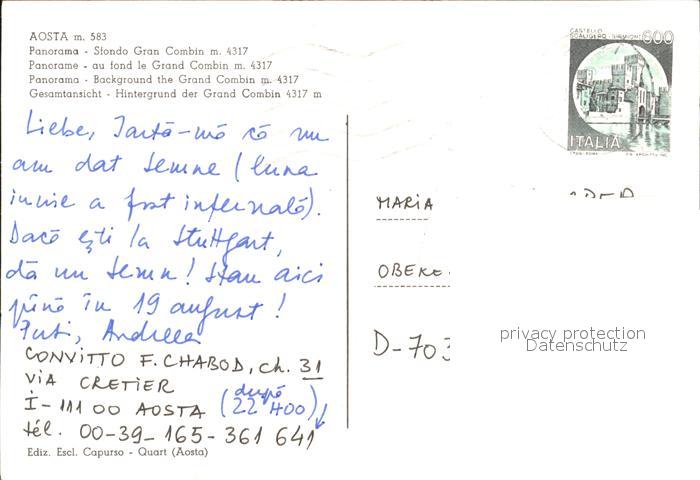 AOSTA m. 583
Panorama - Sfondo Gran Combin m. 4317
Panorame - au fond le Grand Combin m. 4317
Panorama - Background the Grand Combin m. 4317
Gesamtansicht - Hintergrund der Grand Combin 4317 m
CASTELLO
SCALIGERO - SIRMIONE 600
ITALIA
Liebe, Iartă-mă că nu
am dat semne (luna
iunie a fost infernală).
Dacă ești la Stuttgart,
dă un semn! Stau aici
până în 19 august!
Pusi, Andreea
CONVITTO F. CHABOD, ch. 31
VIA CRETIER
I - 111 00 AOSTA (după
22 H00)
tél. 00-39-165-361 641
Ediz. Escl. Capurso - Quart (Aosta)
MARIA
OBERE
D-703
privacy protection
Datenschutz